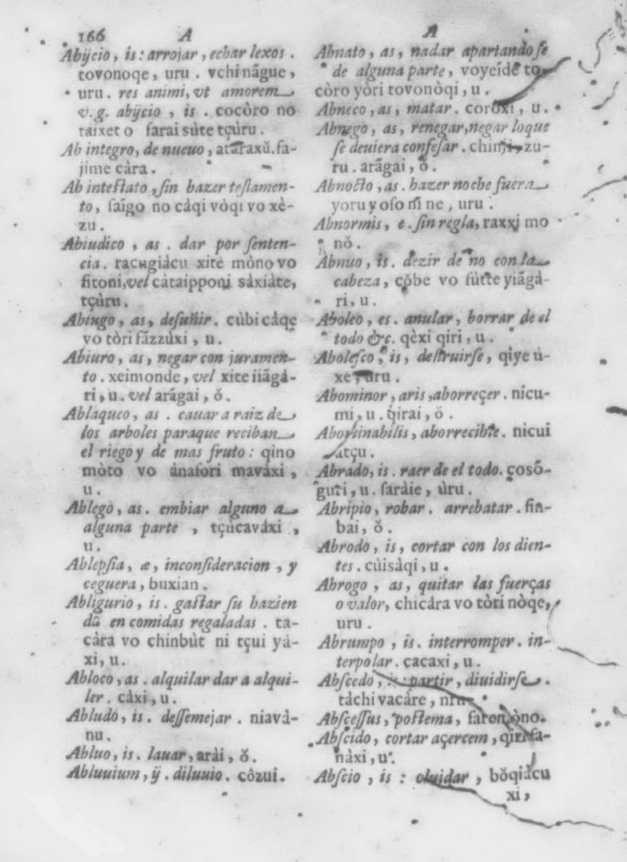 166 A
Abijcio, is: arrojar, echar lexos.
tovonoqe, uru. vchinãgue,
uru. res animi, vt amorem
v.g. abijcio, is. cocòro no
taixet o sarai sùte tçùru.
Ab integro, de nueuo, ataraxŭ. fa-
jime càra.
Ab intestato, sin hazer testamen-
to, saigo no càqi vòqi vo xè-
zu.
Abiudico, as. dar por senten-
cia. racugiàcu xite mòno vo
fitoni, vel càtaipponi sàxiàte,
tçùru.
Abiugo, as, desuñir. cùbi càqe
vo tòri fãzzùxi, u.
Abiuro, as, negar con juramen-
to. xeimonde, vel xite iiãgà-
ri, u. vel arãgai, ŏ.
Ablaqueo, as. cauar a raiz de
los arboles paraque reciban
el riego y de mas fruto: qino
mòto vo ànafori mavàxi,
u.
Ablego, as. embiar alguno a
alguna parte, tçucavàxi,
u.
Ablepsia, æ, inconsideracion, y
ceguera, buxian.
Abligurio, is. gastar su hazien
da en comidas regaladas. ta-
càra vo chinbùt ni tçui yà-
xi, u.
Abloco, as. alquilar dar a alqui-
ler. càxi, u.
Abludo, is. dessemejar. niavà-
nu.
Abluo, is. lauar, arài, ŏ.
Abluuium, ij. diluuio. côzui.
A
Abnato, as, nadar apartandose
de alguna parte, voyeide to-
còro yòri tovonòqi, u.
Abneco, as, matar. coròxi, u.
Abnego, as, renegar, negar loque
se deuiera confesar. chinji, zu-
ru. arãgai, ŏ.
Abnocto, as. hazer noche fuera
yoru yoso ni ne, uru.
Abnormis, e. sin regla, raxxi mo
nŏ.
Abnuo, is. dezir de no con la
cabeza, cŏbe vo fùtte yiãgà-
ri, u.
Aboleo, es. anular, borrar de el
todo &c. qèxi qiri, u.
Abolesco, is, destruirse, qiye ù-
xe, uru.
Abominor, aris, aborreçer. nicu-
mi, u. qirai, ŏ.
Abominabilis, aborrecible. nicui
atçu.
Abrado, is. raer de el todo. çosŏ-
guri, u. faràie, ùru.
Abripio, robar. arrebatar. fin-
bai, ŏ.
Abrodo, is, cortar con los dien-
tes. cùisàqi, u.
Abrogo, as, quitar las fuerças
o valor, chicàra vo tòri nòqe,
uru.
Abrumpo, is. interromper. in-
terpolar. cacaxi, u.
Abscedo, is: partir, diuidirse.
tàchi vacàre,
Abscessus, postema,
Abscido, cortar açercem, qiri fa-
nàxi, u.
Abscio, is: oluidar, bŏqiàcu
xi,